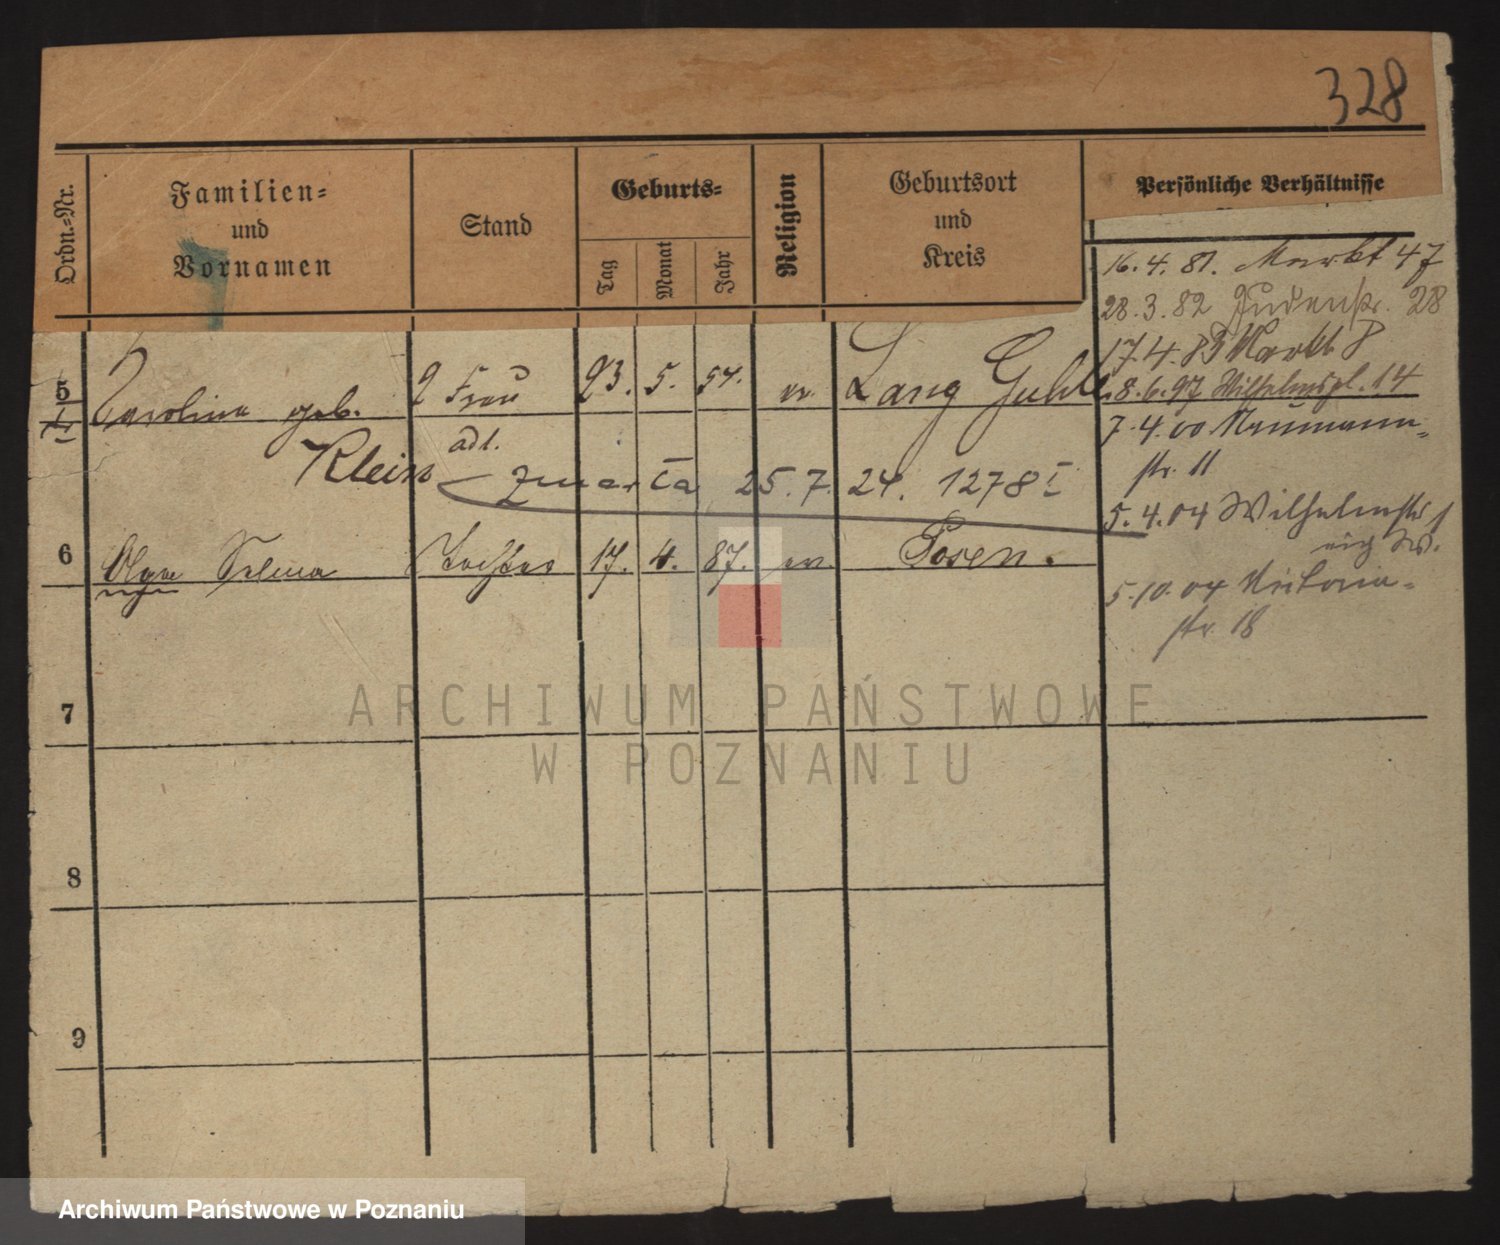 328
Ordn.-Nr.
Familien-
und
Vornamen
Stand
Geburts-
Tag
Monat
Jahr
Religion
Geburtsort
und
Kreis
Persönliche Verhältnisse
16.4.81. Markt 47
28.3.82 Judenstr. 28
17.4.83 Markt 8
5 Carolina geb. 2 Frau 23. 5. 54. ev. Lang Guhle
8.6.97 Wilhelmspl. 14
7.4.00 Naumann-
str. 11
Klein adl. zmarła 25.7.24. 1278 I
5.4.04 Wilhelmstr
6 Olga Selma Tochter 17. 4. 87. ev. Posen.
5.10.04 Victoria-
str. 18
7
8
9
ARCHIWUM PAŃSTWOWE
W POZNANIU
Archiwum Państwowe w Poznaniu